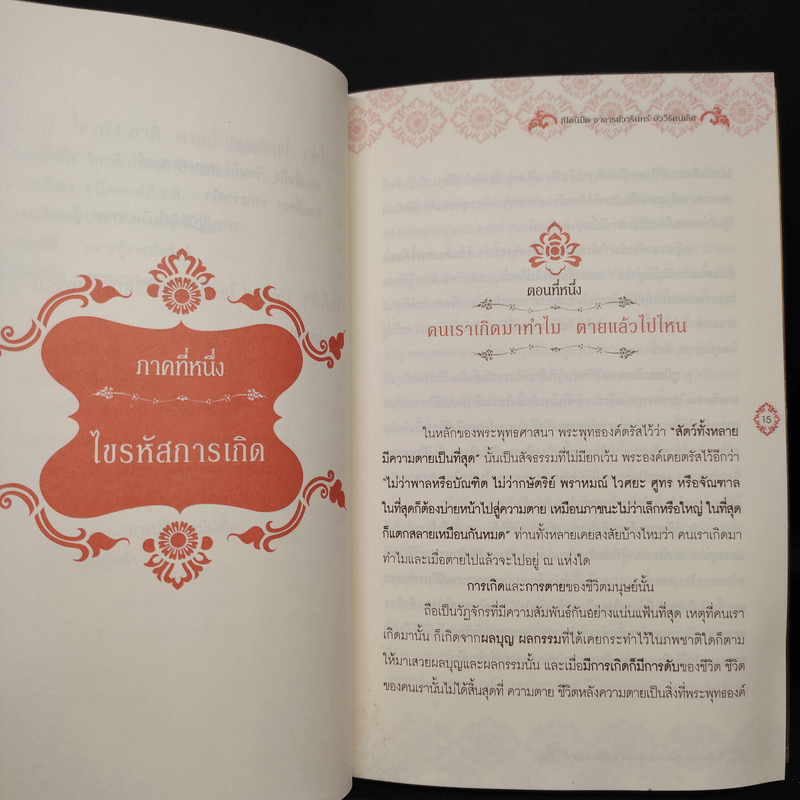 ภาคที่หนึ่ง
ไขรหัสการเกิด
เปิดนิมิต อาจารย์วารินทร์ บัววิรัตน์เลิศ
ตอนที่หนึ่ง
คนเราเกิดมาทำไม ตายแล้วไปไหน
15
ในหลักของพระพุทธศาสนา พระพุทธองค์ตรัสไว้ว่า "สัตว์ทั้งหลาย
มีความตายเป็นที่สุด" นั้นเป็นสัจธรรมที่ไม่มียกเว้น พระองค์เคยตรัสไว้อีกว่า
"ไม่ว่าพาลหรือบัณฑิต ไม่ว่ากษัตริย์ พราหมณ์ ไวศยะ ศูทร หรือจัณฑาล
ในที่สุดก็ต้องบ่ายหน้าไปสู่ความตาย เหมือนภาชนะไม่ว่าเล็กหรือใหญ่ ในที่สุด
ก็แตกสลายเหมือนกันหมด" ท่านทั้งหลายเคยสงสัยบ้างไหมว่า คนเราเกิดมา
ทำไมและเมื่อตายไปแล้วจะไปอยู่ ณ แห่งใด
การเกิดและการตายของชีวิตมนุษย์นั้น
ถือเป็นวัฏจักรที่มีความสัมพันธ์กันอย่างแน่นแฟ้นที่สุด เหตุที่คนเรา
เกิดมานั้น ก็เกิดจากผลบุญ ผลกรรมที่ได้เคยกระทำไว้ในภพชาติใดก็ตาม
ให้มาเสวยผลบุญและผลกรรมนั้น และเมื่อมีการเกิดก็มีการดับของชีวิต ชีวิต
ของคนเรานั้นไม่ได้สิ้นสุดที่ ความตาย ชีวิตหลังความตายเป็นสิ่งที่พระพุทธองค์